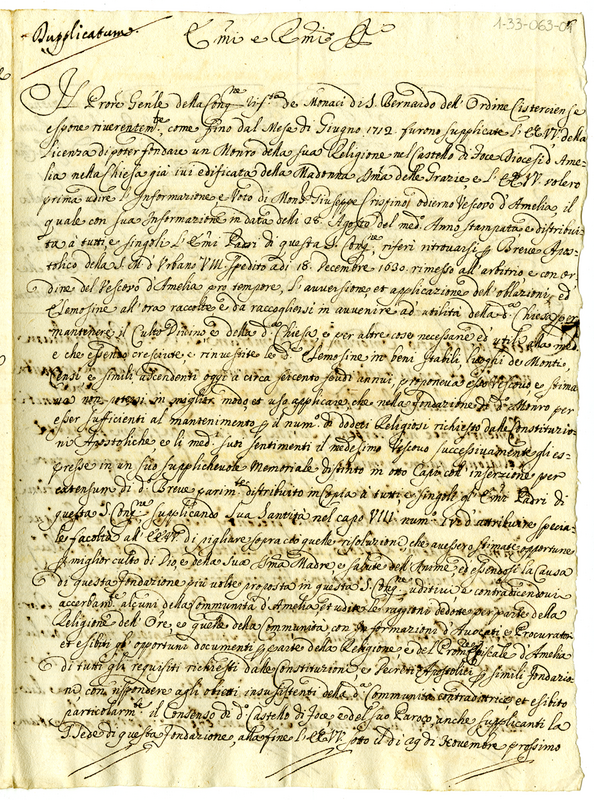 Dupplicatum. E.mi e R.mi Sig.ri 1-33-063-04
Il Proc.re Gen.le della Cong.ne Rif.ta de Monaci di S. Bernardo dell'Ordine Cisterciense
espone riverentem.te, come fino dal Mese di Giugno 1712. furono supplicate l'EE.VV. della
licenza di poter fondare un Mon.ro della sua Religione nel Castello di Foce Diocesi d'Ame-
lia nella Chiesa già ivi edificata della Madonna SS.ma delle Grazie, e l'EE.VV. volero
prima udire l'Informazione e Voto di Mons. Giuseppe Crispino odierno Vescovo d'Amelia, il
quale con sua Informazione in data delli 28. Agosto del med.o Anno stampata e distribui-
ta a tutti e singoli l'E.mi Padri di questa S. Cong.ne, riferì ritrovarsi p Breve Apo-
stolico della S.M. d'Urbano VIII. spedito a di 18. Decembre 1630. rimesso all'arbitrio e con or-
dine del Vescovo d'Amelia pro tempore, l'avversione et applicazione dell'oblazioni, ed
elemosine all'ora raccolte e da raccogliersi in avvenire ad utilità della d.a Chiesa, per
mantenere il Culto Divino e della d.a Chiesa e per altre cose necessarie ed utili alla med.a
e che essendo cresciute, e rinvestite le d.e elemosine in beni stabili luoghi de Monti,
Censi e simili ascendenti oggi a circa seicento scudi annui, proponeva esso Vescovo e stima-
va non potersi in meglior modo, et uso applicare che nella fondazione di d.o Mon.ro per
esser sufficienti al mantenimento p il num.o di dodeci Religiosi richiesto dalle Constituzio-
ni Apostoliche e li med.i suoi sentimenti il medesimo Vescovo successivamente gli es-
presse in un suo supplichevole Memoriale distinto in otto Capi con l'inserzione per
extensum di d.o Breve parim.te distribuito in copia a tutti e singoli gl'E.mi Padri di
questa S. Cong.ne supplicando Sua Santità nel capo VIII. num.o d'attribuire specia-
le facoltà all'EE.VV. di pigliare sopra ciò quelle risoluzioni che avessero stimate opportune
a miglior culto di Dio, e della Sua SS.ma Madre, e salute dell'Anime, ed essendosi la Causa
di questa fondazione più volte proposta in questa S. Cong.ne, uditivi a contradicendovi
acerbam.te alcuni della Communità d'Amelia, et udite le raggioni dedotte per parte della
Religione dell'Ore, e quelle della Communità con Informazioni d'Avocati e Procuratori
et esibiti gl'opportuni documenti p parte della Religione e del Prom.re Fiscale d'Amelia
di tutti gli requisiti richiesti dalle Constituzioni e Decreti Apostolici p simili fondazio-
ni, con rispondere agli obietti insussistenti della d.a Communità contradittrice, et esibito
particolarm.te il Consenso di d.o Castello di Foce e del suo Paroco, anche supplicanti la
S. Sede di questa fondazione, alla fine l'EE.VV. sotto il di 29 di Novembre prossimo